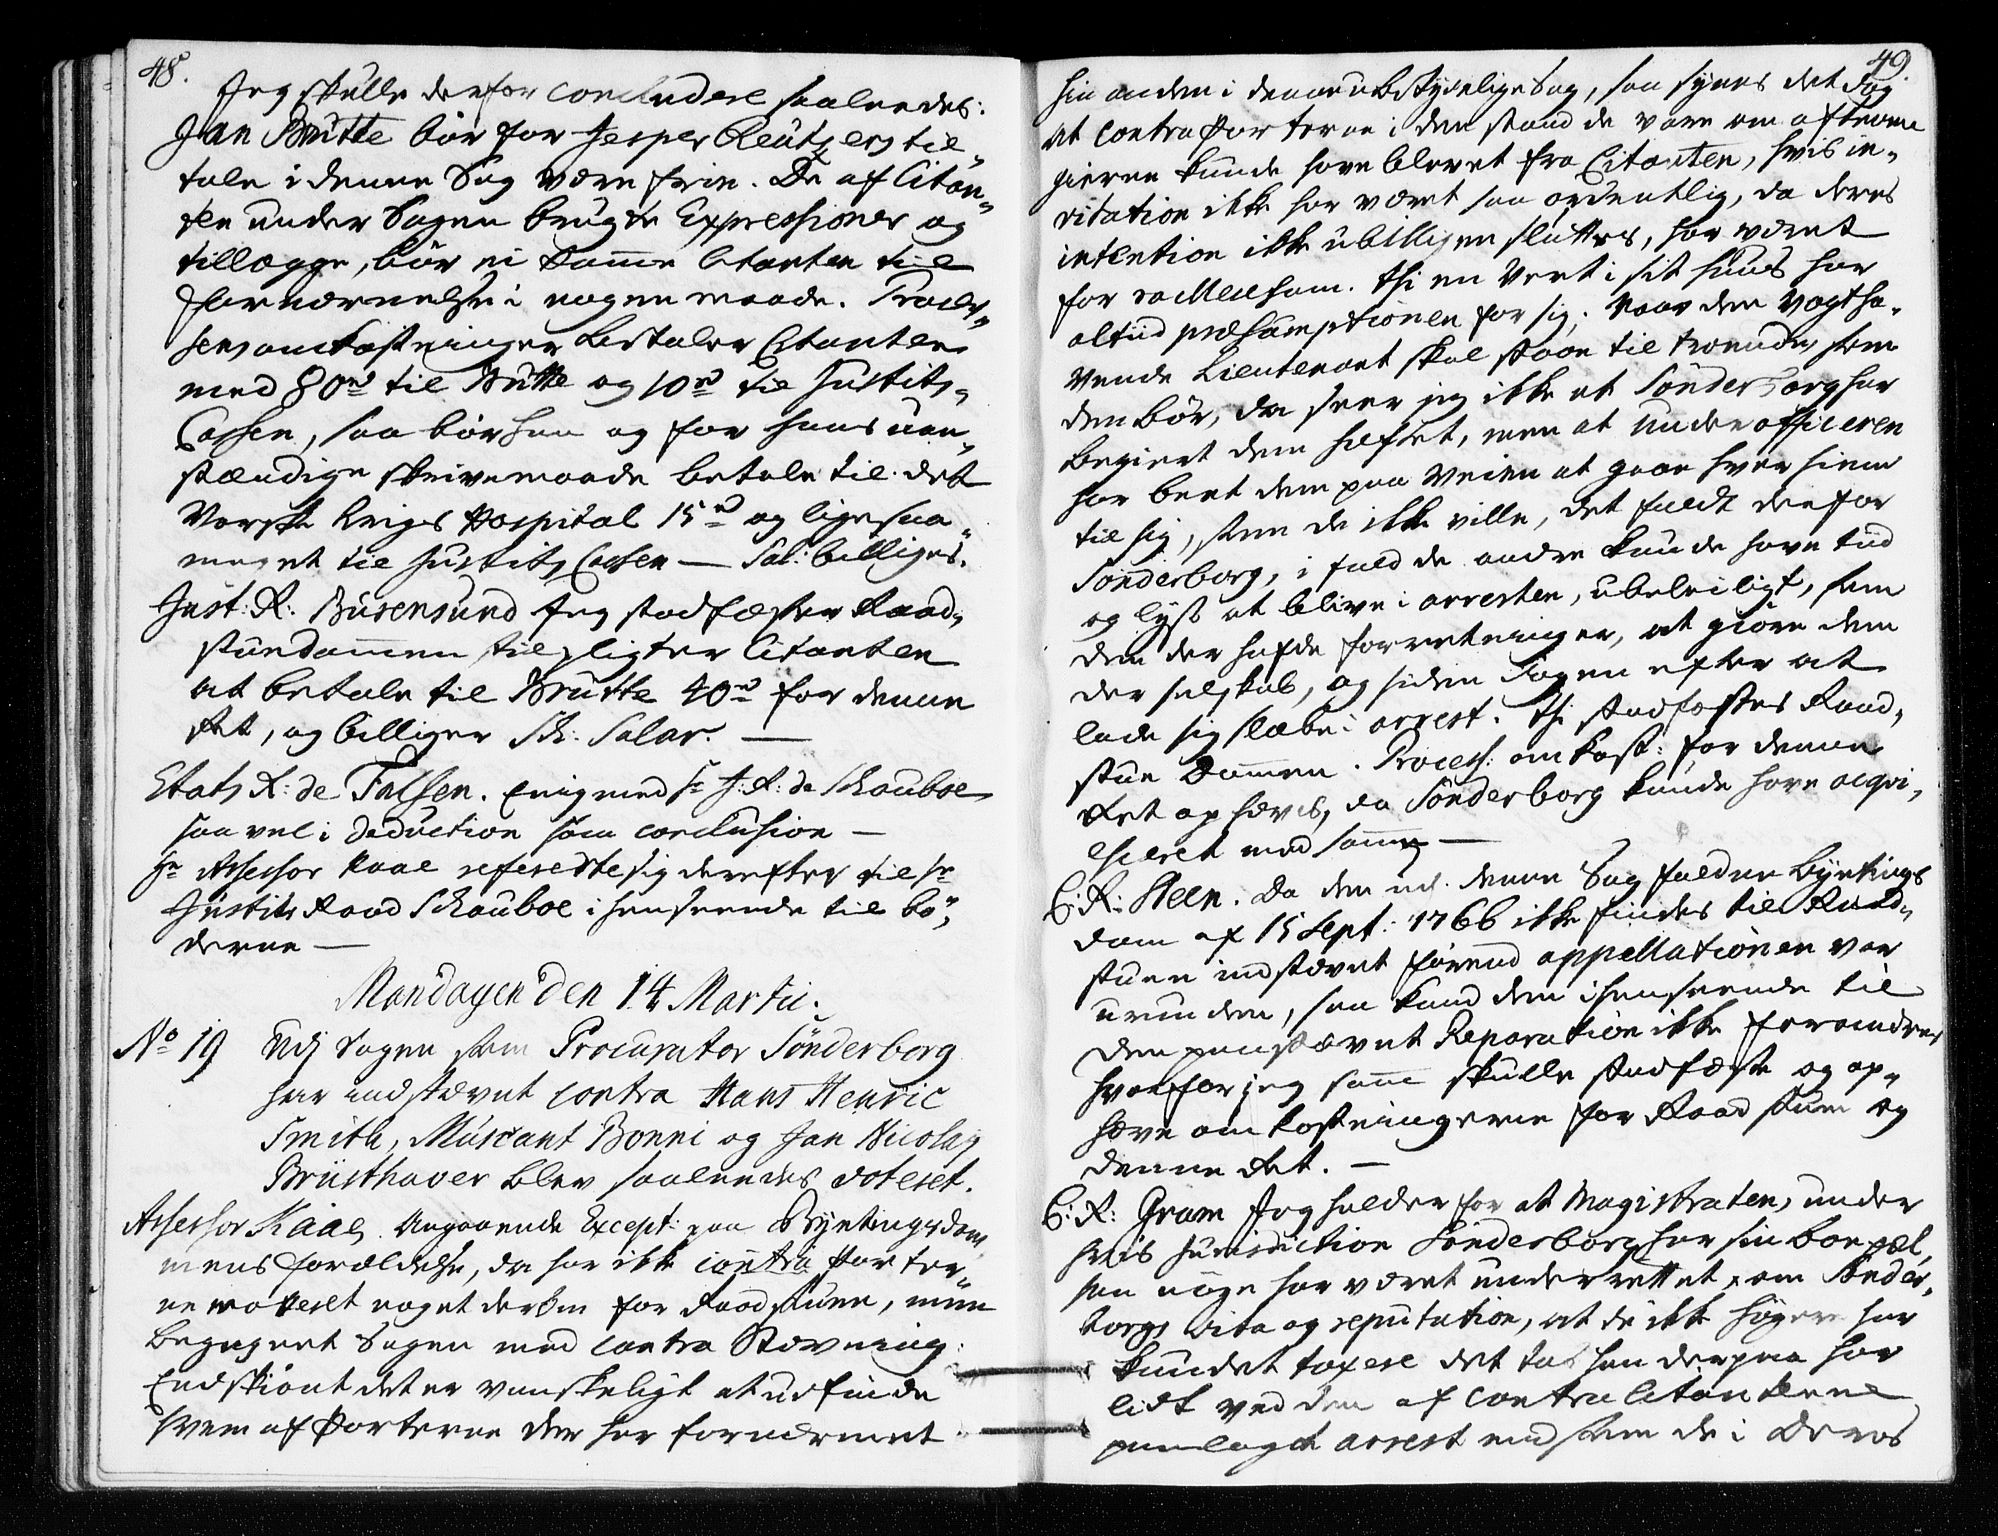 48.
Jeg skulle derfor concludere saaledes:
Jan Brütte bör for Jesper Reutzers til„
tale i denne Sag være frie. De af Citan„
ten under Sagen brugte Expressioner og
tillægge, bör ei komme Citanten til
fornærmelse i nogen maade. Proces„
sens omkostninger betaler Citanten
med 80 rd til Brütte og 10 rd til Justits„
Cassen, saa bör han og for hans uan„
stændige skrivemaade betale til det
Norske Krigs Hospital 15 rd og ligesaa„
meget til Justits Cassen — Sal: billiges.
Just: R: Büsensund Jeg stadfæster Raad„
stuedommen tilpligter Citanten
at betale til Brütte 40 rd for denne
Ret, og billiger Sk: Salar. —
Etats R: de Falsen. Enig med Hr J: R: de Schouboe
saavel i deduction som conclusion —
Hr Assessor Kaae refererte sig derefter til Hr
Justits Raad Schouboe i henseende til bö„
derne —
Mandagen den 14 Martii.
No 19 Udj Sagen som Procurator Sönderborg
har indstævnt contra Hans Henric
Smith, Müsicant Bonni og Jan Nicolay
Brüsthaver blev saaledes voteret.
Assessor Kaae. Angaaende Except: paa Byetingsdom„
mens forældelse, da har ikke contra Parter„
ne moveret noget derom for Raadstuen, men
begegnet Sagen med contra Stævning:
Endskiönt det er vanskeligt at udfinde
hvem af Parterne der har fornærmet
49.
hin anden i denne ubetydelige Sag, saa synes det dog
at contra Parterne i den stand de vare om aftenen
gierne kunde have blevet fra Citanten, hvis in„
vitation ikke har været saa ordentlig, da deres
intention ikke ubilligen sluttes, har været
for voldsom. thi en Vert i sit huus har
altiid præsumptionen for sig; Naar den Vagtha„
vende Lieutenant skal staae til troende, som
den bör, da seer jeg ikke at Sönderborg har
begiert dem hæftet, men at Underofficeren
har bedt dem paa Veien at gaae hver hiem
til sig, som de ikke ville, det faldt derfor
Sönderborg, i fald de andre kunde have tiid
og lyst at blive i arresten, ubeleiligt, som
den der hafde forretninger, at giöre dem
der selskab, og siden Dagen efter at
lade sig slæbe i arrest. Thi stadfæstes Raad„
stue Dommen. Process: omkost: for denne
Ret ophæves, da Sönderborg kunde have acqvi„
esceret med samme —
C: R: Steen. Da den udj denne Sag faldne Byetings
dom af 15 Sept: 1766 ikke findes til Raad„
stuen indstævnt förend appellationen var
urunden, saa kand den i henseende til
den paastævnt Reparation ikke forandres
hvorfor jeg samme skulle stadfæste og op„
hæve omkostningerne for Raadstuen og
denne Ret. —
C: R: Gram Jeg holder for at Magistraten, under
hvis Jurisdiction Sönderborg har sin boepæl,
saa nöye har været underrettet om Sönder„
borgs vita og reputation, at de ikke höyere har
kundet taxere det tab han derpaa har
lidt ved den af contra Citanterne
paalagde arrest end som de i deres